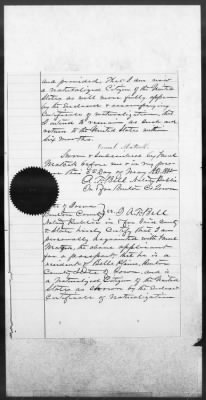 and provided That I am now
a Naturalized Citizen of the United
States as will more fully appear
by the enclosed & accompanying
Certificate of Naturalization, that
I intend to remain as such and
return to the United States within
six months.
Sworn & Subscribed by
before me & in my
this 28 Day of May
A. T. Bell Notary Public
In & for Benton Co Iowa
State of Iowa
Benton County ss I A. T. Bell
Notary Public in & for said County
& State hereby Certify that I am
personally acquainted with
the above applicant
for a passport that he is a
resident of Belle Plaine, Benton
County State of Iowa. and is
a Naturalized Citizen of the United
States as shown by the enclosed
Certificate of Naturalization